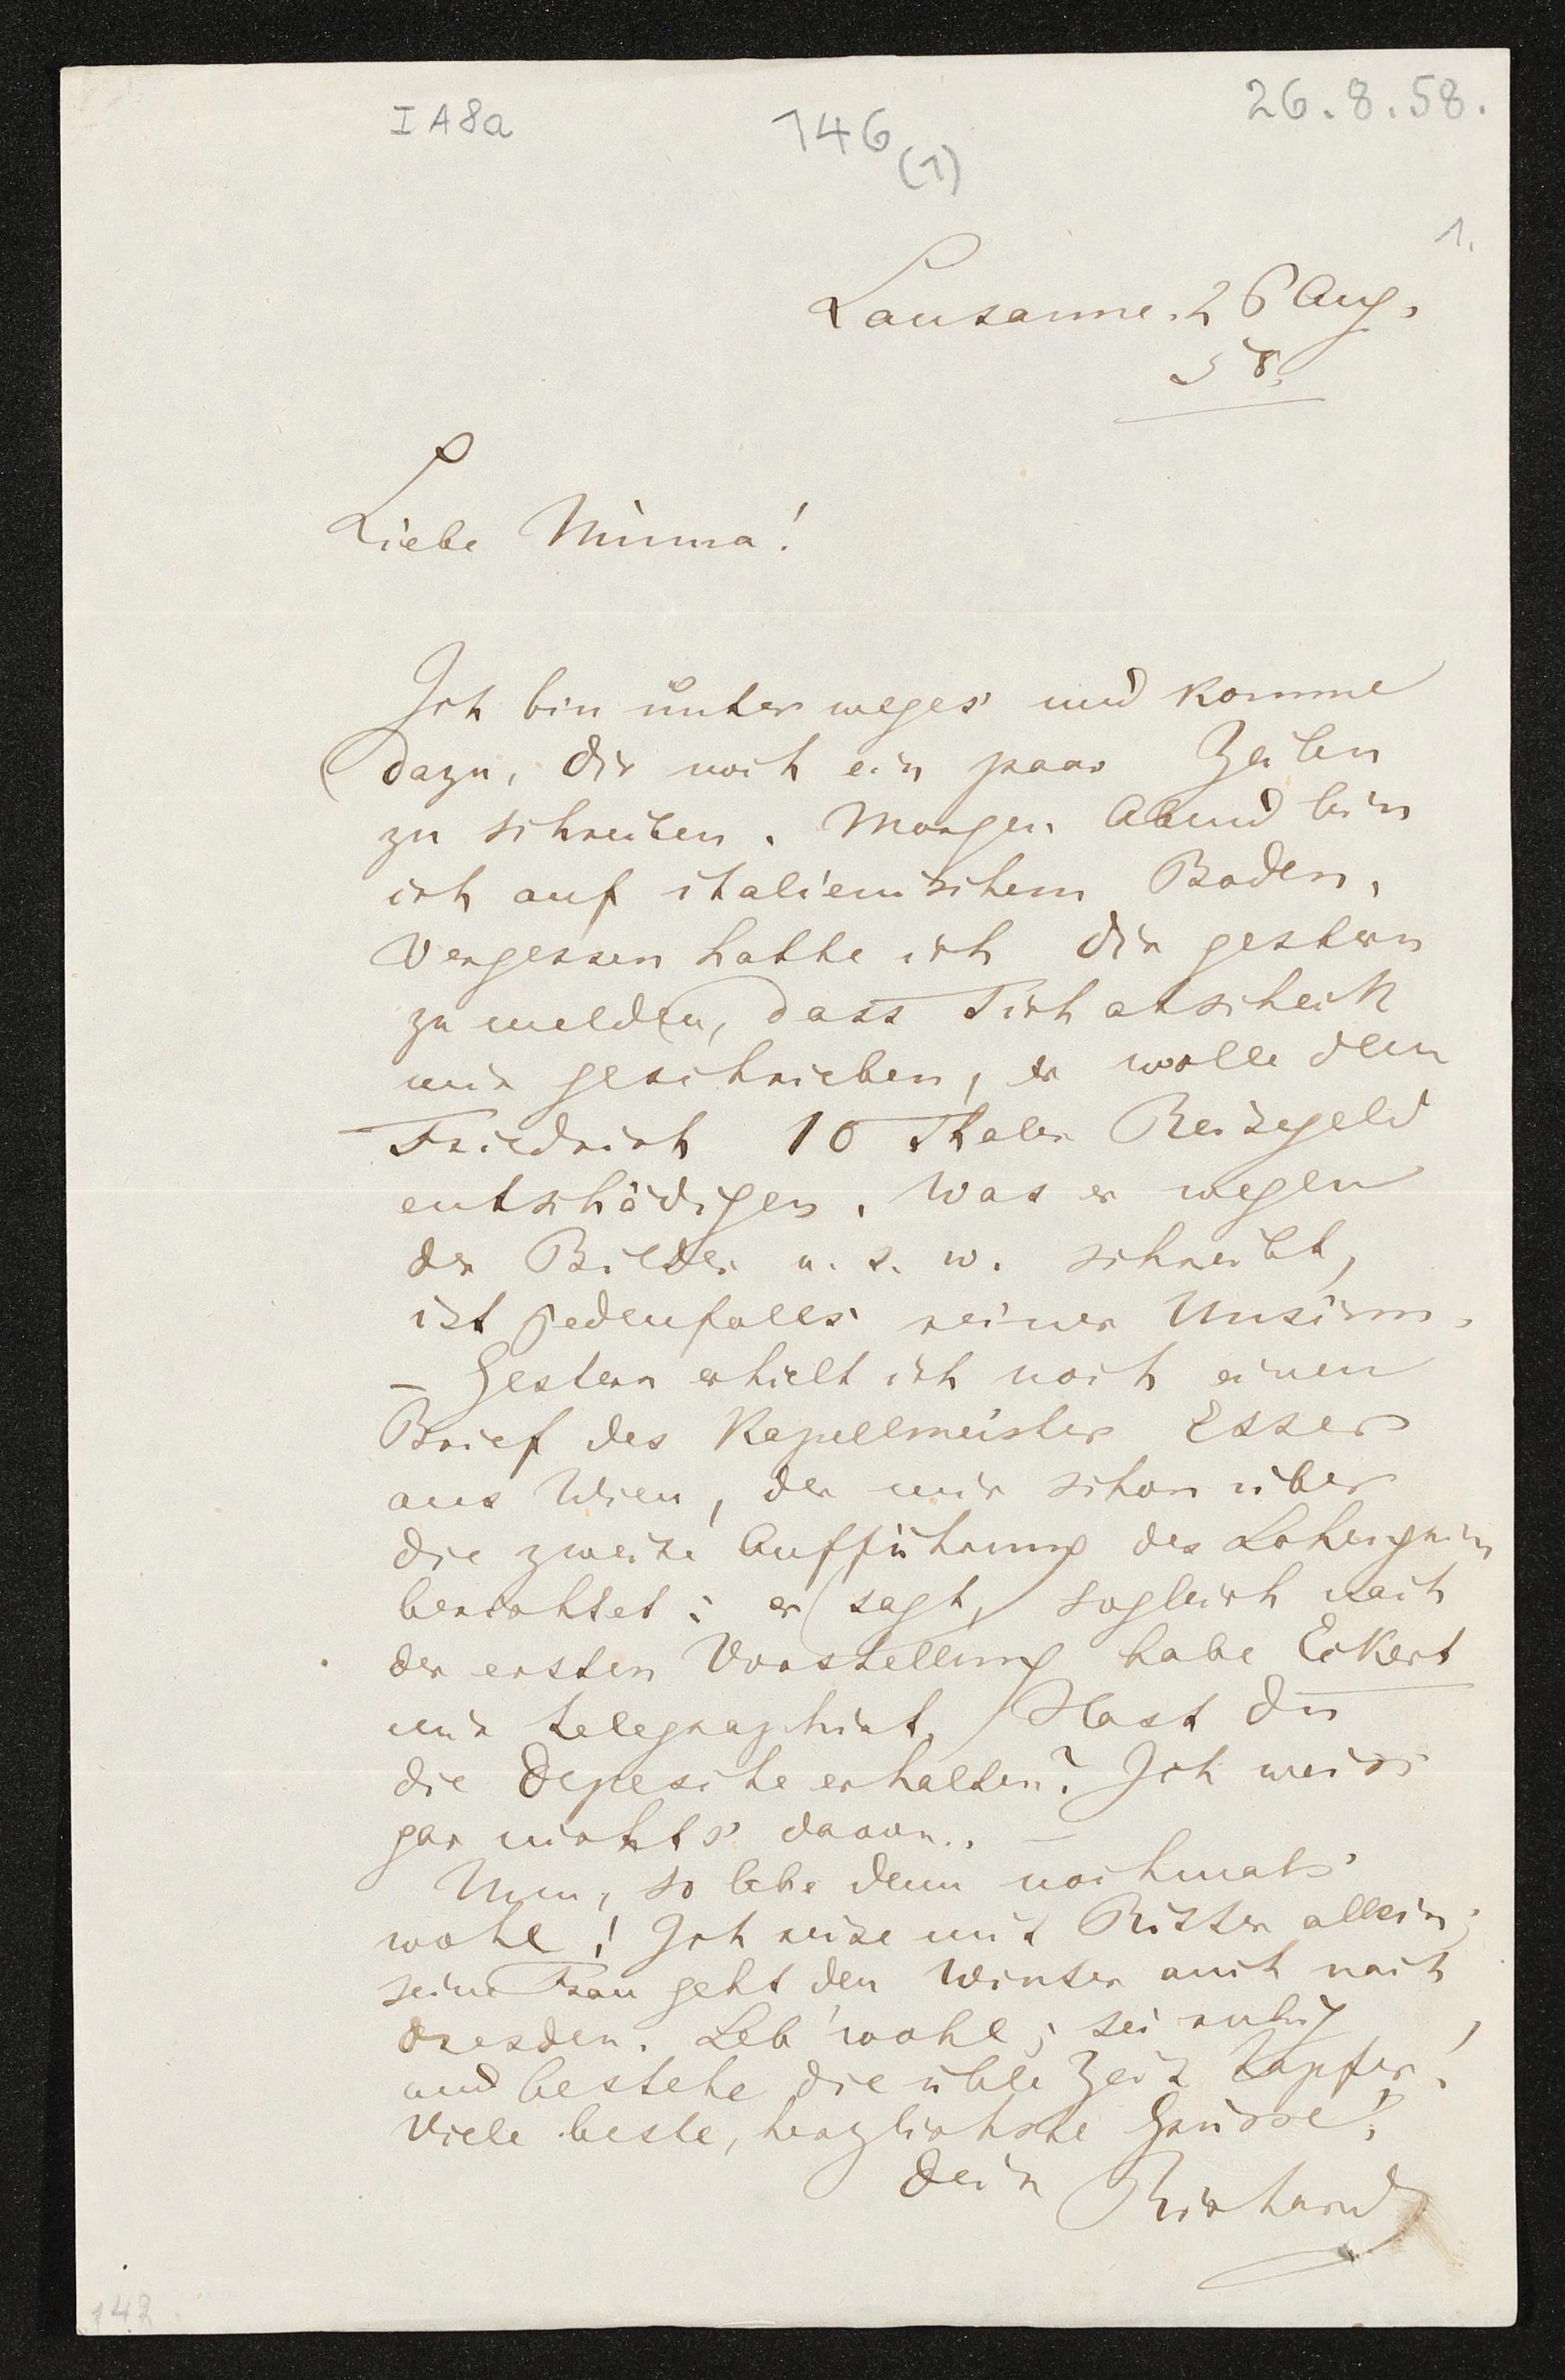 I A 8a
146
(1)
26.8.58.
1.
Lausanne. 26 Aug.
58.
Liebe Minna!
Ich bin unterweges und komme
dazu, Dir noch ein paar Zeilen
zu schreiben. Morgen Abend bin
ich auf italienischem Boden.
Vergessen hatte ich Dir gestern
zu melden, dass Tichatscheck
mir geschrieben, er wolle dem
Friedrich 10 Thaler Reisegeld
entschädigen. Was er wegen
der Bilder u. s. w. schreibt,
ist jedenfalls reiner Unsinn.
– Gestern erhielt ich noch einen
Brief des Kapellmeister Esser
aus Wien, der mir schon über
die zweite Aufführung des Lohengrin
berichtet: er sagt, sogleich nach
der ersten Vorstellung habe Eckert
mir telegraphirt. Hast Du
die Depesche erhalten? Ich weiss
gar nichts davon. –
Nun, so lebe denn nochmals
wohl! Ich reise mit Ritter allein;
seine Frau geht den Winter auch nach
Dresden. Leb' wohl; sei ruhig
und bestehe die üble Zeit tapfer!
Viele beste, herzlichste Grüsse!
Dein Richard
142